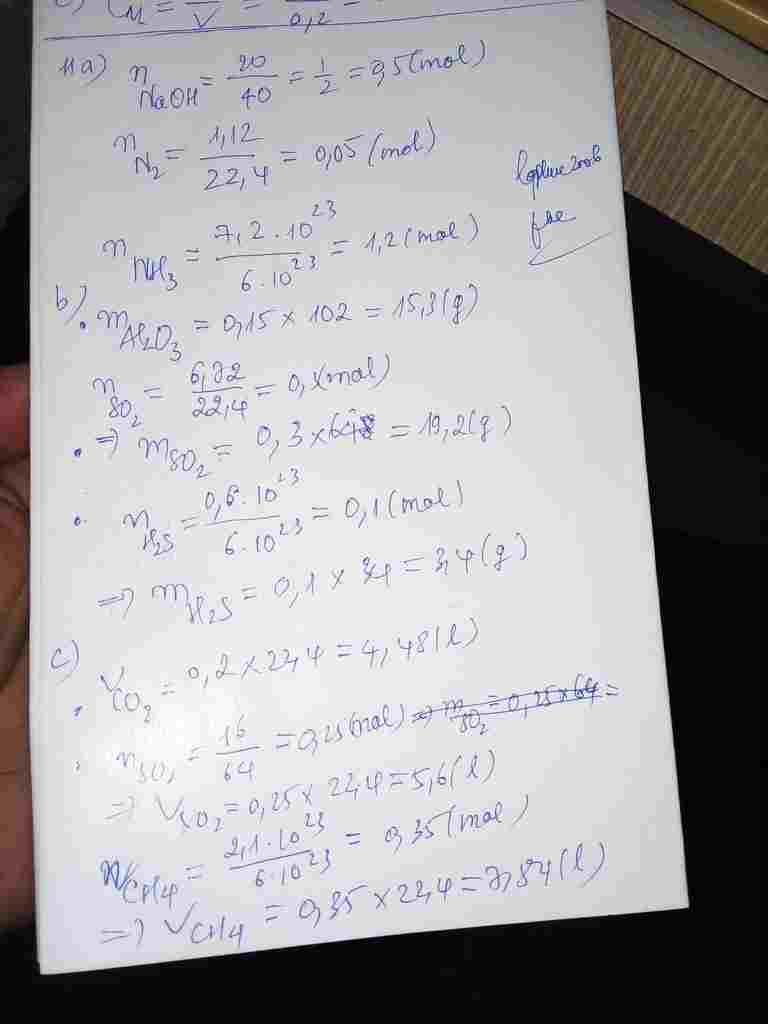 c) C_M = — = — = 
V 0,2
11a) n_NaOH = 20/40 = 1/2 = 0,5 (mol)
n_N2 = 1,12/22,4 = 0,05 (mol)
n_NH3 = 7,2 . 10^23 / 6 . 10^23 = 1,2 (mol)
b) . m_Al2O3 = 0,15 × 102 = 15,3 (g)
n_SO2 = 6,72/22,4 = 0, (mol)
. => m_SO2 = 0,3 × 64 = 19,2 (g)
. n_H2S = 0,6 . 10^23 / 6 . 10^23 = 0,1 (mol)
=> m_H2S = 0,1 × 34 = 3,4 (g)
c) . V_CO2 = 0,2 × 22,4 = 4,48 (l)
. n_SO2 = 16/64 = 0,25 (mol) => m_SO2 = 0,25 × 64 =
=> V_SO2 = 0,25 × 22,4 = 5,6 (l)
n_CH4 = 2,1 . 10^23 / 6 . 10^23 = 0,35 (mol)
=> V_CH4 = 0,35 × 22,4 = 7,84 (l)